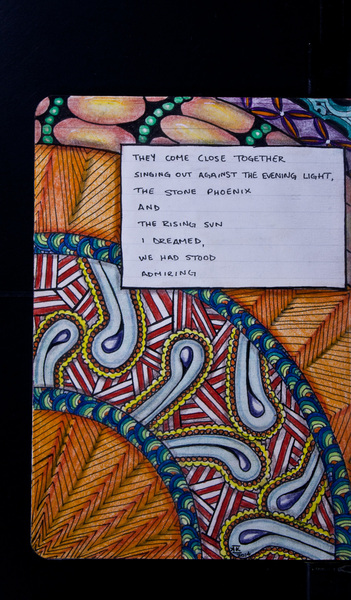 THEY COME CLOSE TOGETHER
SINGING OUT AGAINST THE EVENING LIGHT,
THE STONE PHOENIX
AND
THE RISING SUN
I DREAMED,
WE HAD STOOD
ADMIRING